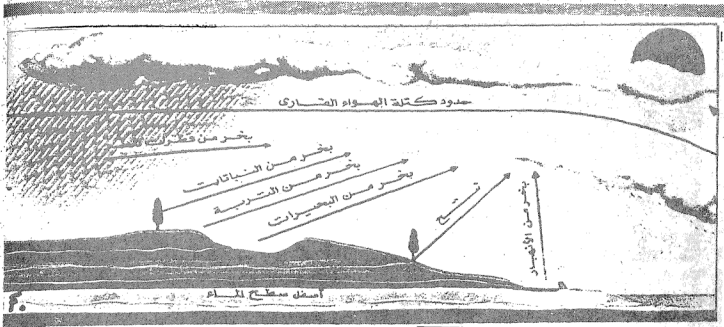 حدود كتلة الهواء القارى
بخر من قطرات
بخر من النباتات
بخر من التربة
بخر من البحيرات
نتح
بخر من الأنهار
أسفل سطح الماء